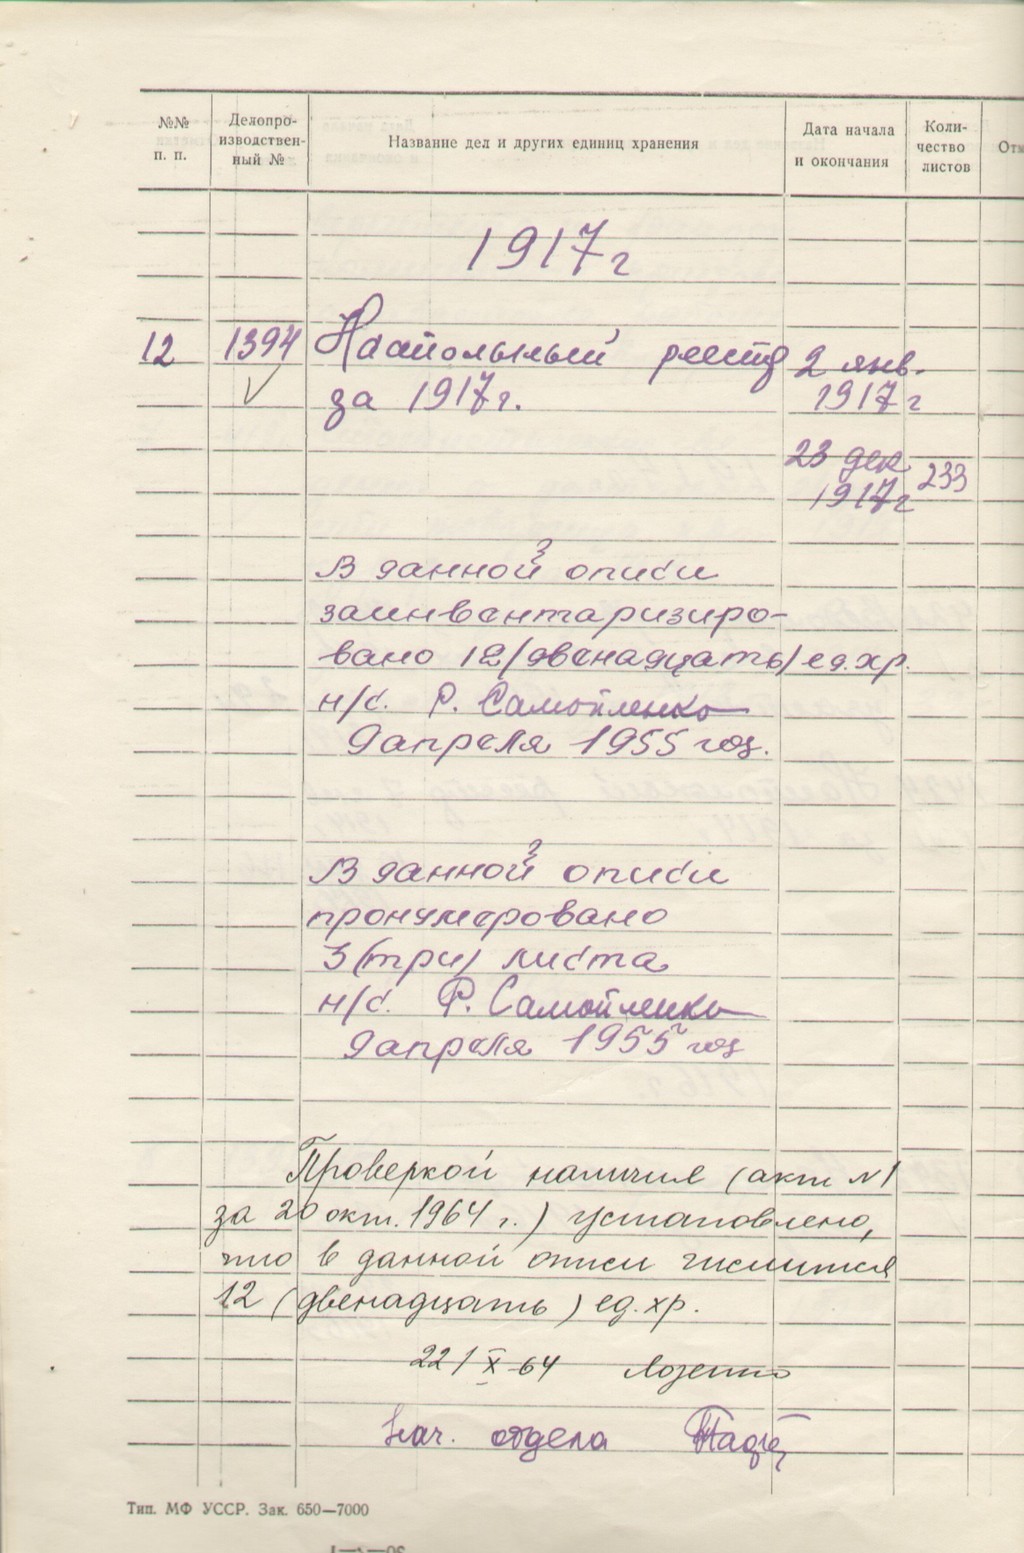 №№ п. п.
Делопро-
изводствен-
ный №
Название дел и других единиц хранения
Дата начала
и окончания
Коли-
чество
листов
Отм
1917 г
12 1394 Настольный реестр 2 янв.
за 1917 г. 1917 г
23 дек
1917 г 233
В данной описи
заинвентаризиро-
вано 12 /двенадцать/ ед. хр.
н/с. Р. Самойленко
9 апреля 1955 год.
В данной описи
пронумеровано
3 (три) листа
н/с. Р. Самойленко
9 апреля 1955 год
Проверкой наличия (акт N1
за 20 окт. 1964 г.) установлено,
что в данной описи числится
12 (двенадцать) ед. хр.
22/X-64
Нач. отдела
Тип. МФ УССР. Зак. 650—7000